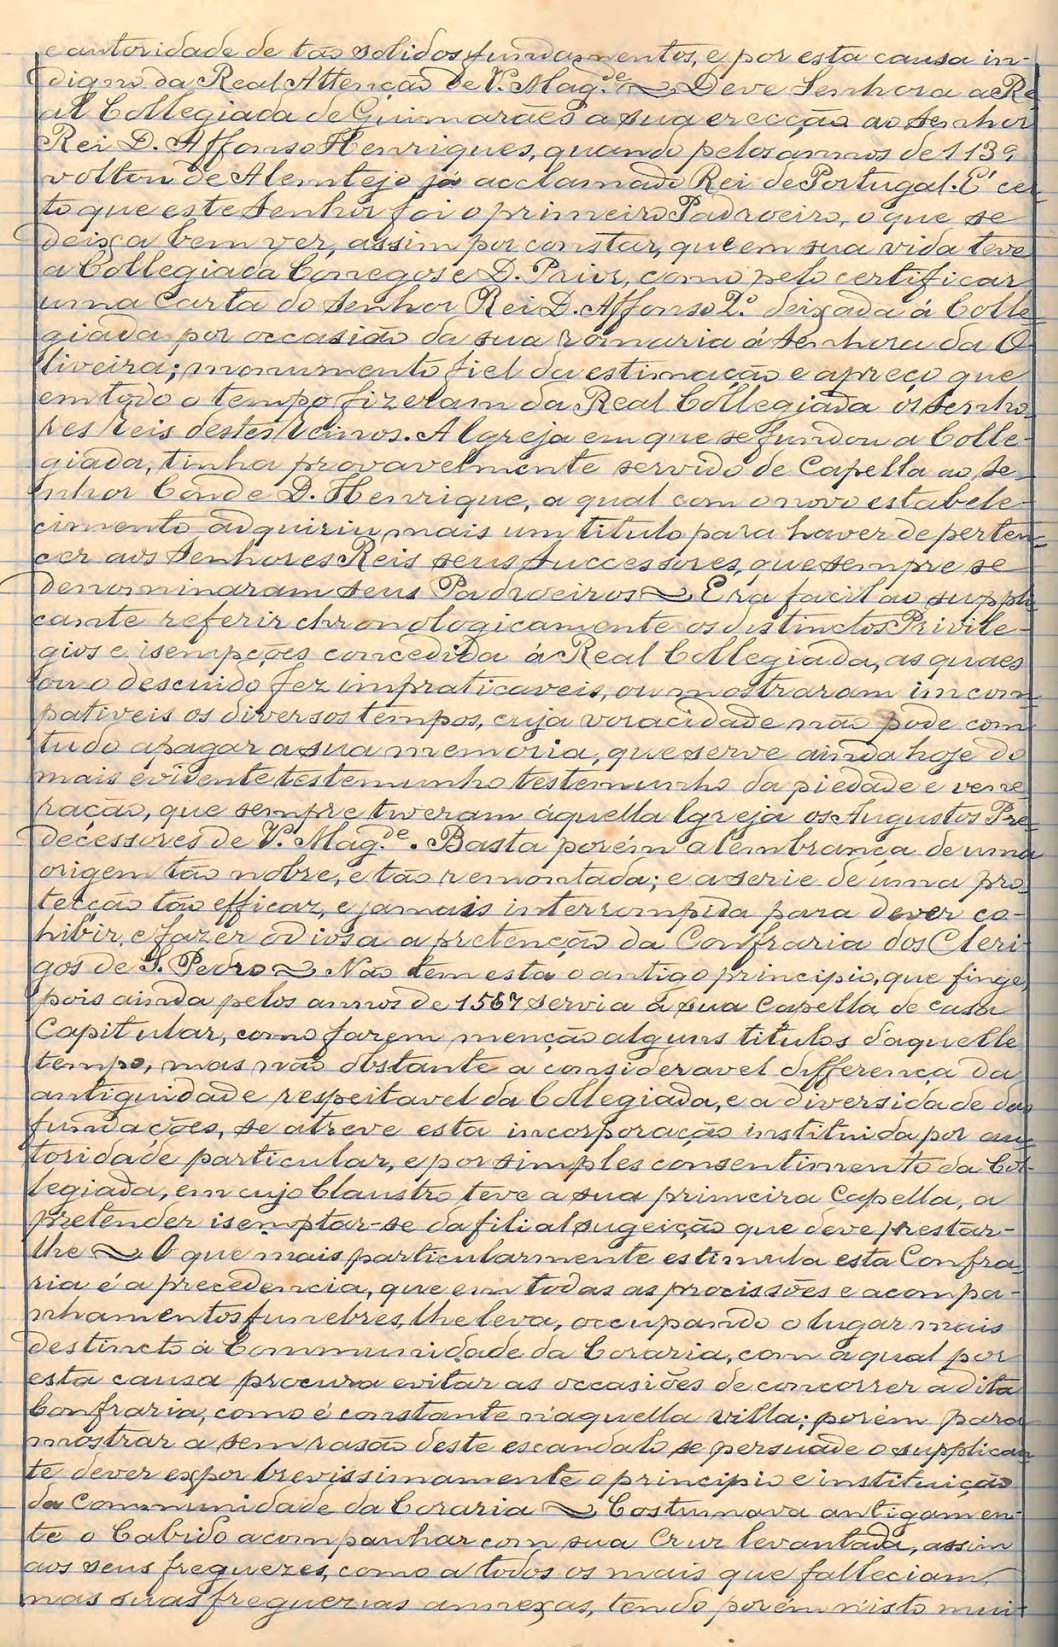 e autoridade de tão solidos fundamentos, e por esta causa in-
digno da Real Attenção de V. Mag.de ~ Deve Senhora a Re
al Collegiada de Guimarães a sua erecção ao Senhor
Rei D. Affonso Henriques, quando pelos annos de 1139
voltou de Alemtejo já acclamado Rei de Portugal. É cer
to que este Senhor foi o primeiro Padroeiro, o que se
deixa bem ver, assim por constar, que em sua vida teve
a Collegiada Conegos e D. Prior, como pelo certificar
uma Carta do Senhor Rei D. Affonso 2.º deixada á Colle
giada por occasião da sua romaria á Senhora da O
liveira; monumento fiel da estimação e apreço que
em todo o tempo fizeram da Real Collegiada os Senho
res reis destes reinos. A Igreja em que se fundou a Colle-
giada, tinha provavelmente servido de Capella ao Se
nhor Conde D. Henrique, a qual com o novo estabele-
cimento adquiriu mais um titulo para haver de perten
cer aos Senhores Reis seus Successores, que sempre se
denominaram seus Padroeiros ~ Era facil ao suppli
cante referir chronologicamente os distinctos Privile-
gios e isempções concedida á Real Collegiada, as quaes
ou o descuido fez impraticaveis, ou mostraram incom
pativeis os diversos tempos, cuja voracidade não pode com
tudo apagar a sua memoria, que serve ainda hoje do
mais evidente testemunho testemunho da piedade e vene
ração, que sempre tiveram áquella Igreja os Augustos Pre
decessores de V. Mag.de. Basta porém a lembrança de uma
origem tão nobre, e tão remontada; e a serie de uma pro
tecção tão efficaz, e jamais interrompida para dever co-
hibir, e fazer odiosa a pretenção da Confraria dos Cleri-
gos de S. Pedro ~ Não tem esta o antigo principio, que finge,
pois ainda pelos annos de 1567 servia a sua Capella de casa
Capitular, como fazem menção alguns titulos d'aquelle
tempo, mas não obstante a consideravel differença da
antiguidade respeitavel da Collegiada, e a diversidade das
fundações, se atreve esta incorporação instituida por au
toridade particular, e por simples consentimento da Col-
legiada, em cujo Claustro teve a sua primeira Capella, a
pretender isemptar-se da filial sugeição que deve prestar-
lhe ~ O que mais particularmente estimula esta Confra
ria é a precedencia, que em todas as procissões e acompa-
nhamentos funebres lhe leva, occupando o lugar mais
destincto a Communidade da Coraria, com a qual por
esta causa procura evitar as occasiões de concorrer a dita
Confraria, como é constante n'aquella villa; porém para
mostrar a sem rasão deste escandalo se persuade o supplican
te dever expor brevissimamente o principio e instituição
da Communidade da Coraria ~ Costumava antigamen-
te o Cabido acompanhar com sua Cruz levantada, assim
aos seus freguezes, como a todos os mais que falleciam
nas suas freguezias annexas, tendo porém n'isto mui-